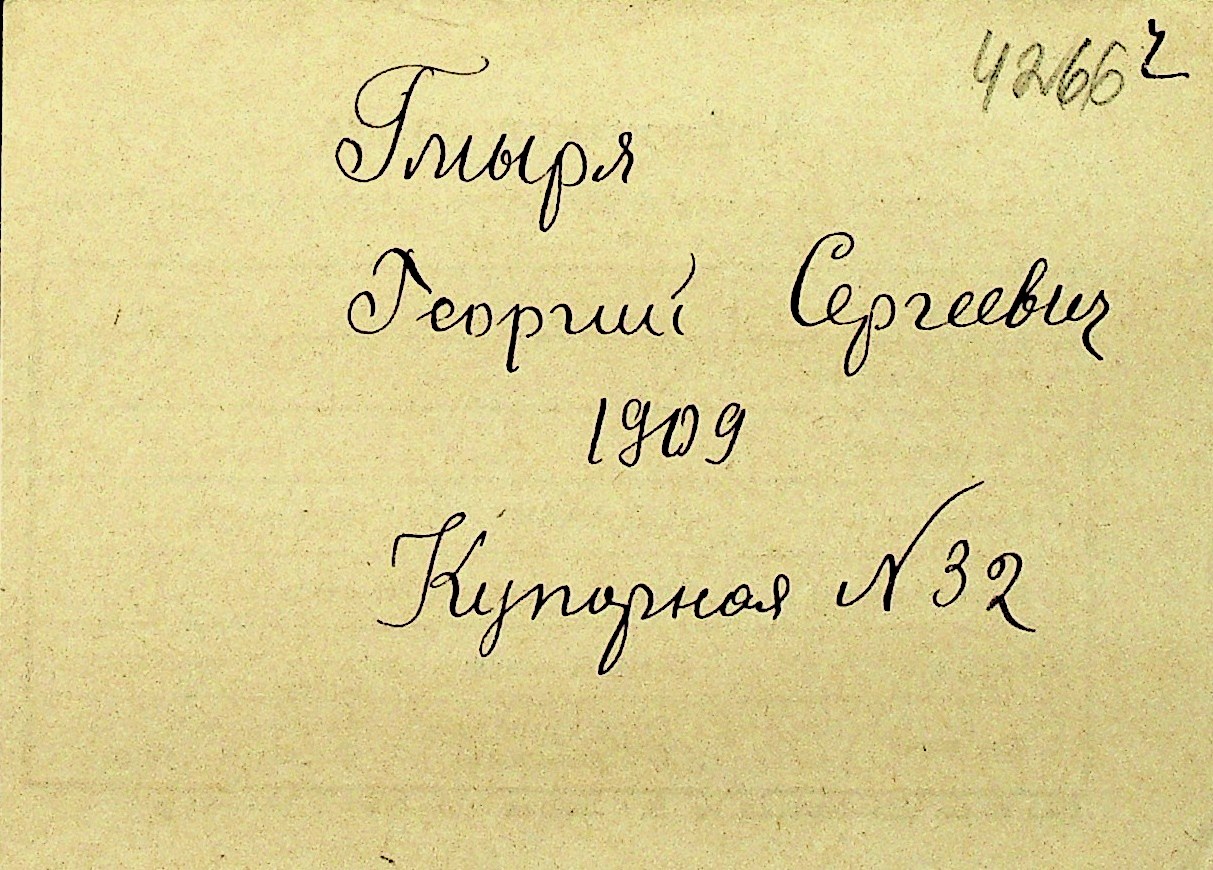 4266 г
Гмыря
Георгий Сергеевич
1909
Купорная N 32